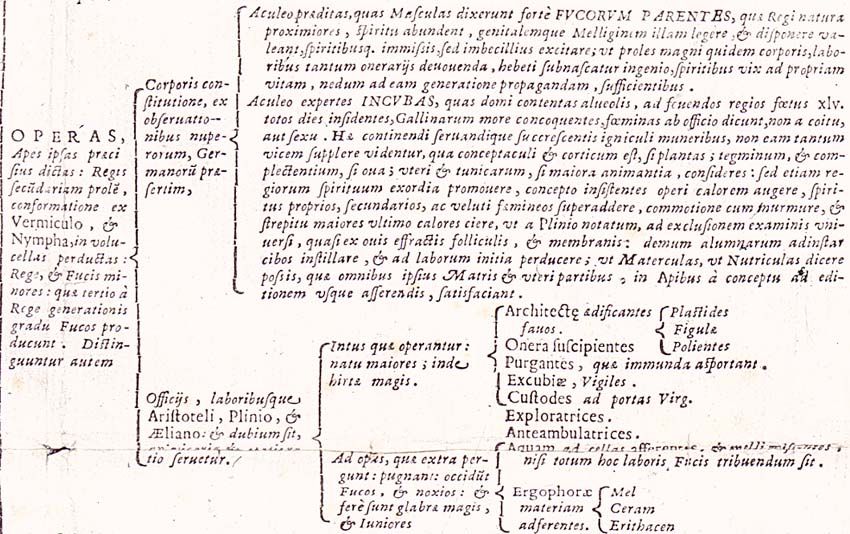 Aculeo præditas, quas Mæsculas dixerunt fortè FVCORVM PARENTES, quæ Regi natura
proximiores, ſpiritu abundent, genitalemque Melliginem illam legere, & diſponere va-
leant, ſpiritibuſq. immiſsis, ſed imbecillius excitare; vt proles magni quidem corporis, labo-
ribus tantum onerarijs deuouenda, hebeti ſubnaſcatur ingenio, ſpiritibus vix ad propriam
vitam, nedum ad eam generatione propagandam, ſufficientibus.
Corporis con-
ſtitutione, ex
obſeruatio-
nibus nupe-
rorum, Ger-
manorū præ-
ſertim,
Aculeo expertes INCVBAS, quas domi contentas alueolis, ad fouendos regios fœtus xlv.
totos dies inſidentes, Gallinarum more concoquentes, fœminas ab officio dicunt, non a coitu,
aut ſexu. Hæ continendi ſeruandique ſuccreſcentis igniculi muneribus, non eam tantum
vicem ſupplere videntur, qua conceptaculi & corticum eſt, ſi plantas; tegminum, & com-
plectentium, ſi oua; vteri & tunicarum, ſi maiora animantia, conſideres: ſed etiam re-
giorum ſpirituum exordia promouere, concepto inſiſtentes operi calorem augere, ſpiri-
tus proprios, ſecundarios, ac veluti fæmineos ſuperaddere, commotione cum murmure, &
ſtrepitu maiores vltimo calores ciere, vt a Plinio notatum, ad excluſionem examinis vni-
uerſi, quaſi ex ouis effractis folliculis, & membranis: demum alumnarum adinſtar
cibos inſtillare, & ad laborum initia perducere; vt Materculas, vt Nutriculas dicere
poſsis, quæ omnibus ipſius Matris & vteri partibus, in Apibus à conceptu ad edi-
tionem vſque aſſerendis, ſatisfaciant.
OPERAS,
Apes ipſas præci
ſius dictas: Regis
ſecūdariam prolē,
conformatione ex
Vermiculo, &
Nympha, in volu-
cellas perductas:
Rege, & Fucis mi-
nores: quæ tertio à
Rege generationis
gradu Fucos pro-
ducunt. Diſtin-
guuntur autem
Officijs, laboribuſque
Ariſtoteli, Plinio, &
Æliano: & dubium ſit,
tio ſeruetur.
Intus quæ operantur:
natu maiores; inde
hirtæ magis.
Architectę ædificantes
fauos.
Plaſtides
Figulæ
Polientes
Onera ſuſcipientes
Purgantes, quæ immunda aſportant.
Excubiæ, Vigiles.
Cuſtodes ad portas Virg.
Ad opus, quæ extra per-
gunt: pugnant: occidūt
Fucos, & noxios: &
ferè ſunt glabræ magis,
& Iuniores
Exploratrices.
Anteambulatrices.
Aquam ad cellas afferentes, & melli miſcentes,
niſi totum hoc laboris Fucis tribuendum ſit.
Ergophoræ
materiam
adferentes.
Mel
Ceram
Erithacen